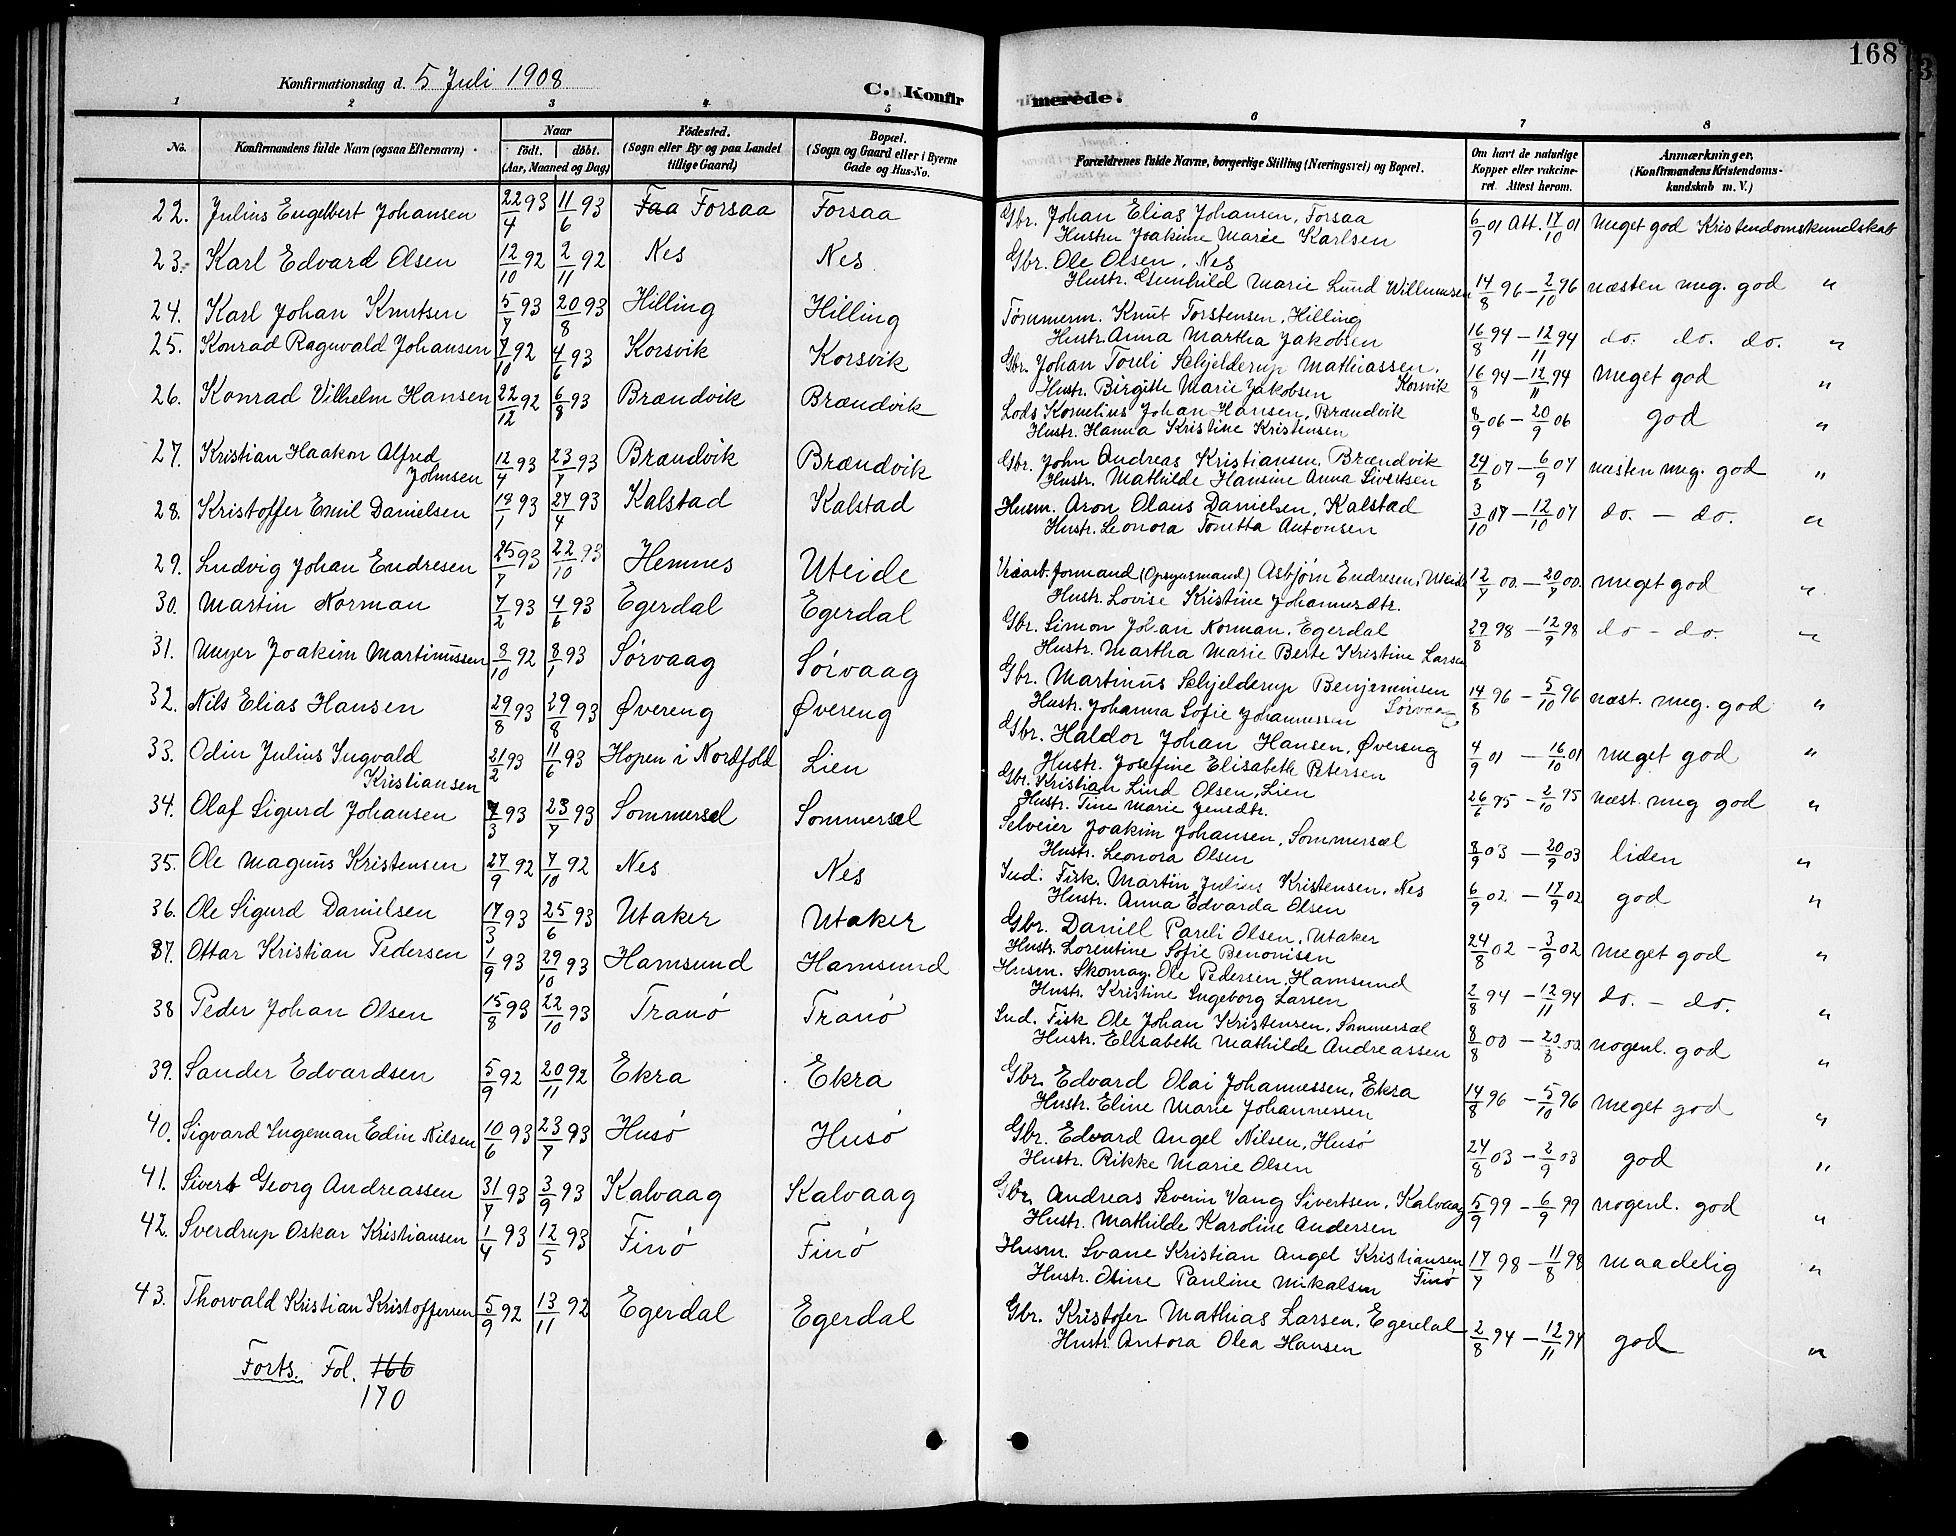 168
Konfirmationsdag d. 5 Juli 1908
C. Konfirmerede.
1 2 3 4 5 6 7 8
No. Konfirmandens fulde Navn (ogsaa Efternavn) Naar født. døbt. (Aar, Maaned og Dag) Fødested. (Sogn eller By og paa Landet tillige Gaard) Bopæl. (Sogn og Gaard eller i Byerne Gade og Hus-No. Forældrenes fulde Navne, borgerlige Stilling (Næringsvei) og Bopæl. Om havt de naturlige Kopper eller vakcineret. Attest herom. Anmærkninger. (Konfirmandens Kristendomskundskab m. V.)
22. Julius Engelbert Johansen 22/4 93 11/6 93 Faa Forsaa Forsaa Gbr. Johan Elias Johansen, Forsaa 6/9 01 Att. 17/10 01 Meget god Kristendomskundskab
Hustru Joakime Marie Karlsen
23. Karl Edvard Olsen 12/10 92 2/11 92 Nes Nes Gbr. Ole Olsen, Nes
Hustr. Gunhild Marie Lund Willumsen 14/8 96 – 2/10 96 næsten meg. god "
24. Karl Johan Knutsen 5/7 93 20/8 93 Hilling Hilling Tømmerm. Knut Torstensen, Hilling
Hustr. Anna Martha Jakobsen 16/8 94 – 12/11 94 do. do. do. "
25. Konrad Ragnvald Johansen 7/10 92 4/6 93 Korsvik Korsvik Gbr. Johan Toreli Schjelderup Mathiassen,
Hustr. Birgitte Marie Jakobsen Korsvik 16/8 94 – 12/11 94 Meget god "
26. Konrad Vilhelm Hansen 22/12 92 6/8 93 Brændvik Brændvik Lods Kornelius Johan Hansen, Brændvik
Hustr. Hanna Kristine Kristensen 8/9 06 – 20/9 06 god "
27. Kristian Haakon Alfred
Johnsen 12/4 93 23/7 93 Brændvik Brændvik Gbr. John Andreas Kristiansen, Brændvik
Hustr. Mathilde Hansine Anna Sivertsen 24/8 07 – 6/9 07 næsten meg. god "
28. Kristoffer Emil Danielsen 19/1 93 27/4 93 Kalstad Kalstad Husm. Aron Olaus Danielsen, Kalstad
Hustr. Leonora Tonetta Antonsen 3/10 07 – 12/10 07 do. – do. "
29. Ludvig Johan Endresen 25/7 93 22/10 93 Hemnes Uteide Veiarb. Formand (Opsynsmand) Asbjørn Endresen, Uteide
Hustr. Lovise Kristine Johannesdtr. 12/7 00. – 20/7 00. meget god "
30. Martin Norman 7/2 93 4/6 93 Egerdal Egerdal Gbr. Simon Johan Norman, Egerdal
Hustr. Martha Marie Berte Kristine Larsen 29/8 98 – 12/9 98 do – do. "
31. Meyer Joakim Martinussen 8/10 92 8/1 93 Sørvaag Sørvaag Gbr. Martinus Schjelderup Benjaminsen
Hustr. Johanna Sofie Johannessen Sørvaag 14/8 96 – 5/10 96 næst. meg. god "
32. Nils Elias Hansen 29/8 93 29/8 93 Øvereng Øvereng Gbr. Haldor Johan Hansen, Øvereng
Hustr. Josefine Elisabeth Petersen 4/9 01 – 16/10 01 meget god "
33. Odin Julius Ingvald
Kristiansen 21/2 93 11/6 93 Hopen i Nordfold Lien Gbr. Kristian Lind Olsen, Lien
Hustr. Tine Marie Jensdtr. 26/6 95 – 2/10 95 næst. meg god "
34. Olaf Sigurd Johansen 7/3 93 23/7 93 Sommersel Sommersel Selveier Joakim Johansen, Sommersæl
Hustr. Leonora Olsen 8/9 03 – 20/9 03 liden "
35. Ole Magnus Kristensen 27/9 92 7/10 92 Nes Nes Ind. Fisk. Martin Julius Kristensen, Nes
Hustr. Anna Edvarda Olsen 6/9 02 – 17/9 02 god "
36. Ole Sigurd Danielsen 17/3 93 25/6 93 Utaker Utaker Gbr. Daniel Pareli Olsen, Utaker
Hustr. Lorentine Sofie Benonisen 24/8 02 – 3/9 02 meget god "
37. Ottar Kristian Pedersen 1/9 93 29/10 93 Hamsund Hamsund Husm. Skomag. Ole Pedersen, Hamsund
Hustr. Kristine Ingeborg Larsen 2/8 94 – 12/11 94 do. – do. "
38 Peder Johan Olsen 15/8 93 22/10 93 Tranø Tranø Ind. Fisk Ole Johan Kristensen, Sommersæl
Hustr. Elisabeth Mathilde Andreassen 8/8 00 – 20/8 00 nogenl. god "
39. Sander Edvardsen 5/9 92 20/11 92 Ekra Ekra Gbr. Edvard Olai Johannessen, Ekra
Hustr. Eline Marie Johannessen 14/8 96 – 5/10 96 meget god "
40. Sigvard Ingeman Edin Nilsen 10/6 93 23/7 93 Husø Husø Gbr. Edvard Angel Nilsen, Husø
Hustr. Rikke Marie Olsen 24/8 03 – 2/9 03 god "
41. Sivert Georg Andreassen 31/7 93 3/9 93 Kalvaag Kalvaag Gbr. Andreas Severin Vang Sivertsen, Kalvaag
Hustr. Mathilde Karoline Andersen 5/9 99 – 6/9 99 nogenl. god "
42. Sverdrup Oskar Kristiansen 1/4 93 12/5 93 Finø Finø Husm. Svane Kristian Angel Kristiansen
Hustr. Oline Pauline Mikalsen Finø 17/7 98 – 11/8 98 maadelig "
43. Thorvald Kristian Kristoffersen 5/9 92 13/11 92 Egerdal Egerdal Gbr. Kristofer Mathias Larsen, Egerdal
Hustr. Antora Olea Hansen 2/8 94 – 12/11 94 god "
Forts. Fol. 166
170